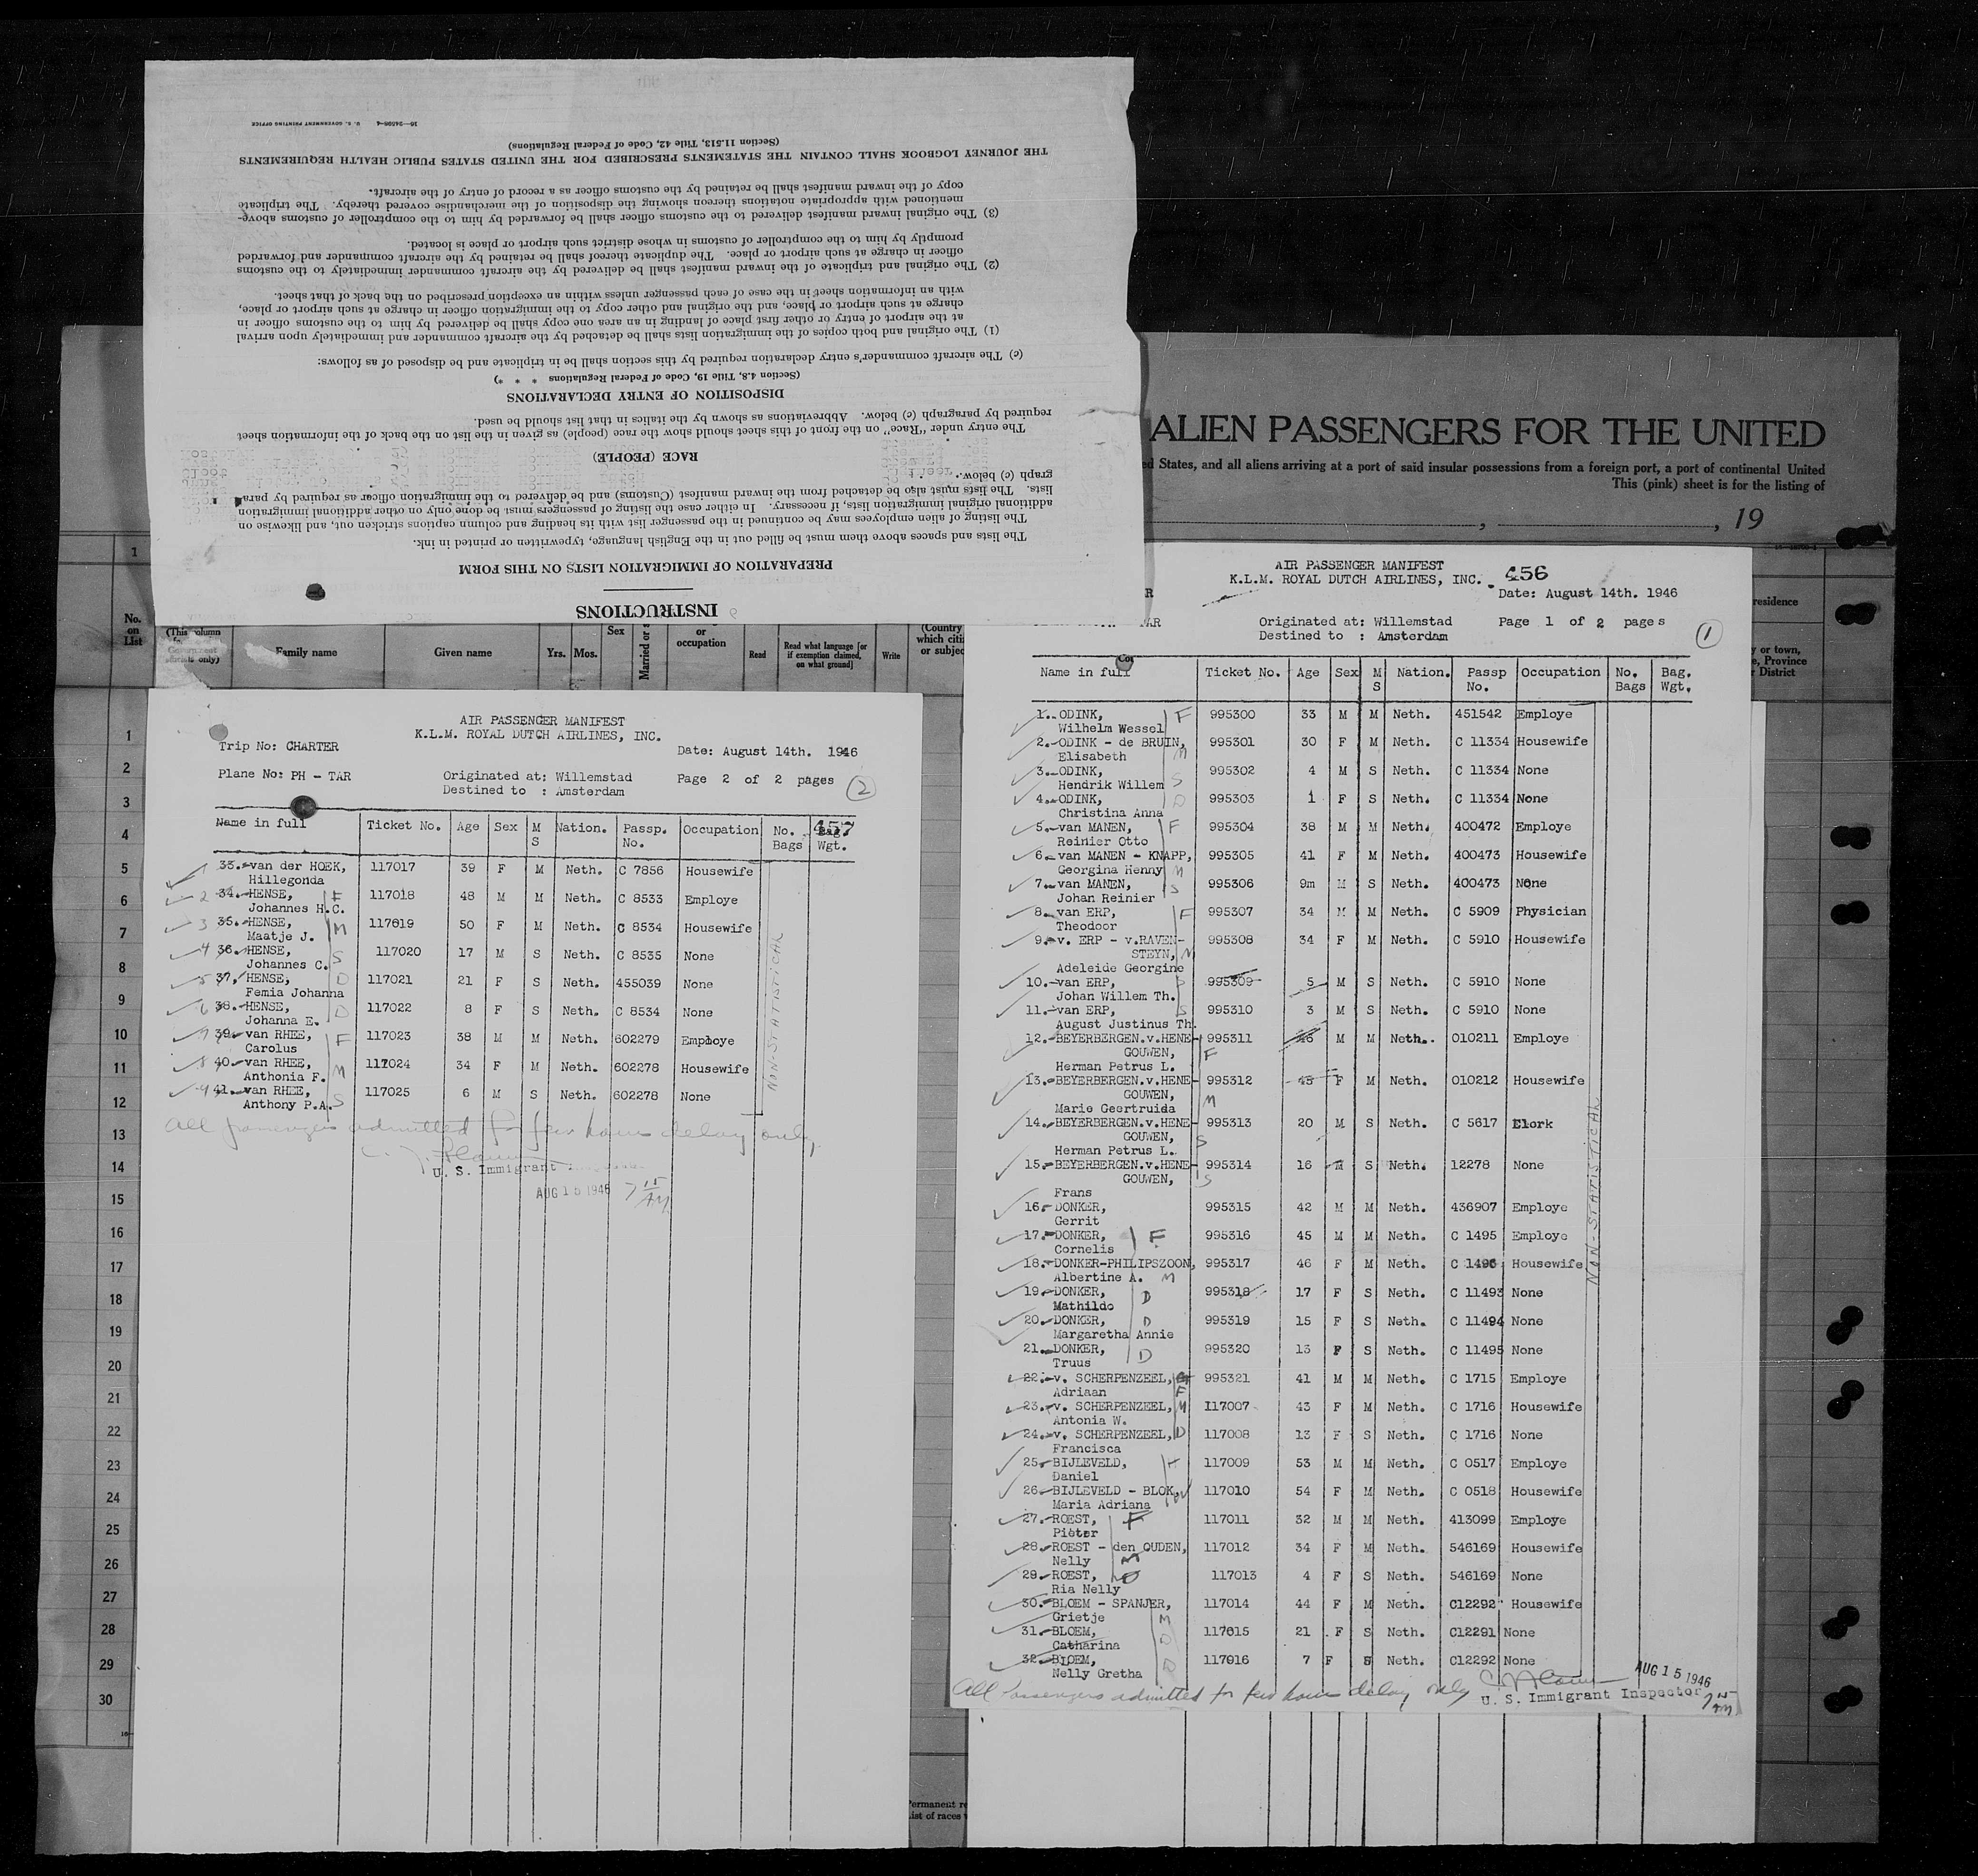 INSTRUCTIONS
PREPARATION OF IMMIGRATION LISTS ON THIS FORM
The lists and spaces above them must be filled out in the English language, typewritten or printed in ink.
The listing of alien employees may be continued in the passenger list with its heading and column captions stricken out, and likewise on
additional original immigration lists, if necessary. In either case the listing of passengers must be done only on other additional immigration
lists. The lists must also be detached from the inward manifest (Customs) and be delivered to the immigration officer as required by para-
graph (c) below.
RACE (PEOPLE)
The entry under "Race" on the front of this sheet should show the race (people) as given in the list on the back of the information sheet
required by paragraph (c) below. Abbreviations as shown by the italics in that list should be used.
DISPOSITION OF ENTRY DECLARATIONS
(Section 4.8, Title 19, Code of Federal Regulations * * *)
(c) The aircraft commander's entry declaration required by this section shall be in triplicate and be disposed of as follows:
(1) The original and both copies of the immigration lists shall be detached by the aircraft commander and immediately upon arrival
at the airport of entry or other first place of landing in an area one copy shall be delivered by him to the customs officer in
charge at such airport or place, and the original and other copy to the immigration officer in charge at such airport or place,
with an information sheet in the case of each passenger unless within an exception prescribed on the back of that sheet.
(2) The original and triplicate of the inward manifest shall be delivered by the aircraft commander immediately to the customs
officer in charge at such airport or place. The duplicate thereof shall be retained by the aircraft commander and forwarded
promptly by him to the comptroller of customs in whose district such airport or place is located.
(3) The original inward manifest delivered to the customs officer shall be forwarded by him to the comptroller of customs above-
mentioned with appropriate notations thereon showing the disposition of the merchandise covered thereby. The triplicate
copy of the inward manifest shall be retained by the customs officer as a record of entry of the aircraft.
THE JOURNEY LOGBOOK SHALL CONTAIN THE STATEMENTS PRESCRIBED FOR THE UNITED STATES PUBLIC HEALTH REQUIREMENTS
(Section 11.513, Title 42, Code of Federal Regulations)
U. S. GOVERNMENT PRINTING OFFICE
ALIEN PASSENGERS FOR THE UNITED
ed States, and all aliens arriving at a port of said insular possessions from a foreign port, a port of continental United
This (pink) sheet is for the listing of
, , 19
1
No. on List
(This column
Government officials only)
Family name
Given name
Yrs. Mos.
Sex
Married or s
or occupation
Read
Read what language [or if exemption claimed, on what ground]
Write
(Country which citi or subjec
residence
y or town,
e, Province
District
1
2
3
4
5
6
7
8
9
10
11
12
13
14
15
16
17
18
19
20
21
22
23
24
25
26
27
28
29
30
Permanent re
List of races
AIR PASSENGER MANIFEST
K.L.M. ROYAL DUTCH AIRLINES, INC.
Trip No: CHARTER
Date: August 14th. 1946
Plane No: PH - TAR
Originated at: Willemstad
Page 2 of 2 pages
2
Destined to : Amsterdam
457
Name in full Ticket No. Age Sex M S Nation. Passp. No. Occupation No. Bags Bag. Wgt.
1 33. van der HOEK, 117017 39 F M Neth. C 7856 Housewife
Hillegonda
2 34. HENSE, F 117018 48 M M Neth. C 8533 Employe
Johannes H.C.
3 35. HENSE, 117619 50 F M Neth. C 8534 Housewife
Maatje J. M
4 36. HENSE, 117020 17 M S Neth. C 8535 None
Johannes C. S
5 37. HENSE, D 117021 21 F S Neth. 455039 None
Femia Johanna
6 38. HENSE, D 117022 8 F S Neth. C 8534 None
Johanna E.
7 39. van RHEE, F 117023 38 M M Neth. 602279 Employe
Carolus
8 40. van RHEE, M 117024 34 F M Neth. 602278 Housewife
Anthonia F.
9 41. van RHEE, S 117025 6 M S Neth. 602278 None
Anthony P.A.
NON-STATISTICAL
All passengers admitted for few hours delay only.
U. S. Immigrant
AUG 15 1946 7 15 AM
AIR PASSENGER MANIFEST
K.L.M. ROYAL DUTCH AIRLINES, INC.
456
Date: August 14th. 1946
R
AR
Originated at: Willemstad
Page 1 of 2 pages
1
Destined to : Amsterdam
Name in full Ticket No. Age Sex M S Nation. Passp No. Occupation No. Bags Bag. Wgt.
1. ODINK, F 995300 33 M M Neth. 451542 Employe
Wilhelm Wessel
2. ODINK - de BRUIN, 995301 30 F M Neth. C 11334 Housewife
Elisabeth M
3. ODINK, 995302 4 M S Neth. C 11334 None
Hendrik Willem S
4. ODINK, D 995303 1 F S Neth. C 11334 None
Christina Anna
5. van MANEN, F 995304 38 M M Neth. 400472 Employe
Reinier Otto
6. van MANEN - KNAPP, 995305 41 F M Neth. 400473 Housewife
Georgina Henny M
7. van MANEN, S 995306 9m M S Neth. 400473 None
Johan Reinier
8. van ERP, F 995307 34 M M Neth. C 5909 Physician
Theodoor
9. v. ERP - v.RAVEN- 995308 34 F M Neth. C 5910 Housewife
STEYN, M
Adeleide Georgine
10. van ERP, S 995309 5 M S Neth. C 5910 None
Johan Willem Th.
11. van ERP, S 995310 3 M S Neth. C 5910 None
August Justinus Th.
12. BEYERBERGEN.v.HENE- 995311 46 M M Neth. 010211 Employe
GOUWEN, F
Herman Petrus L.
13. BEYERBERGEN.v.HENE- 995312 45 F M Neth. 010212 Housewife
GOUWEN,
Marie Geertruida M
14. BEYERBERGEN.v.HENE- 995313 20 M S Neth. C 5617 Clerk
GOUWEN, S
Herman Petrus L.
15. BEYERBERGEN.v.HENE- 995314 16 M S Neth. 12278 None
GOUWEN, S
Frans
16. DONKER, 995315 42 M M Neth. 436907 Employe
Gerrit
17. DONKER, F 995316 45 M M Neth. C 1495 Employe
Cornelis
18. DONKER-PHILIPSZOON, 995317 46 F M Neth. C 1496 Housewife
Albertine A. M
19. DONKER, D 995318 17 F S Neth. C 11493 None
Mathilde
20. DONKER, D 995319 15 F S Neth. C 11494 None
Margaretha Annie
21. DONKER, D 995320 13 F S Neth. C 11495 None
Truus
22. v. SCHERPENZEEL, 995321 41 M M Neth. C 1715 Employe
Adriaan F
23. v. SCHERPENZEEL, M 117007 43 F M Neth. C 1716 Housewife
Antonia W.
24. v. SCHERPENZEEL, D 117008 13 F S Neth. C 1716 None
Francisca
25. BIJLEVELD, 117009 53 M M Neth. C 0517 Employe
Daniel
26. BIJLEVELD - BLOK, 117010 54 F M Neth. C 0518 Housewife
Maria Adriana
27. ROEST, F 117011 32 M M Neth. 413099 Employe
Pieter
28. ROEST - den OUDEN, 117012 34 F M Neth. 546169 Housewife
Nelly M
29. ROEST, D 117013 4 F S Neth. 546169 None
Ria Nelly
30. BLOEM - SPANJER, 117014 44 F M Neth. C12292 Housewife
Grietje M
31. BLOEM, D 117015 21 F S Neth. C12291 None
Catharina
32. BLOEM, D 117016 7 F S Neth. C12292 None
Nelly Gretha
NON-STATISTICAL
All Passengers admitted for few hours delay only
U. S. Immigrant Inspector
AUG 15 1946
7 15 AM